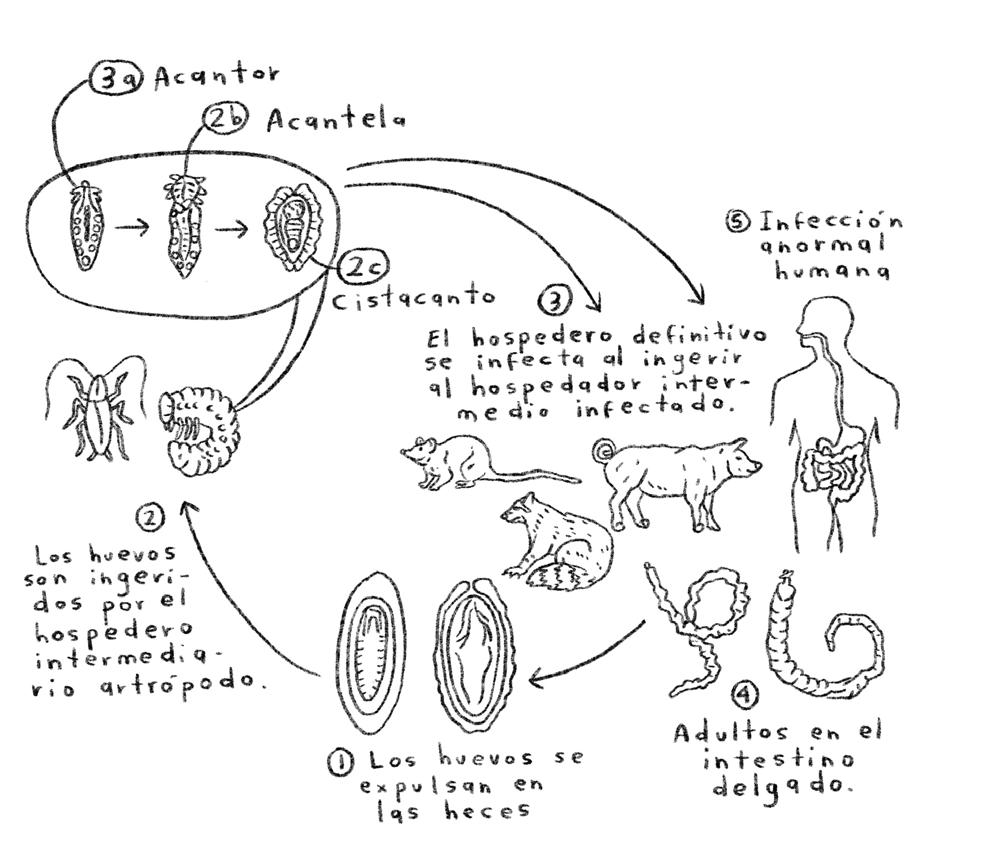 3a Acantor
2b Acantela
2c
Cistacanto
5 Infección
anormal
humana
3
El hospedero definitivo
se infecta al ingerir
al hospedador inter-
medio infectado.
2
Los huevos
son ingeri-
dos por el
hospedero
intermedia-
rio artrópodo.
4
Adultos en el
intestino
delgado.
1 Los huevos se
expulsan en
las heces